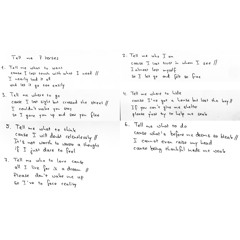 Tell me 7 verses
1. Tell me what to want
cause I lost touch with what I need //
I nearly had it all
and let it go too easily
2. Tell me who I am
cause I lost trust in whom I see //
I almost lost myself
so I let go and felt so free
3. Tell me where to go
cause I lost sight but crossed the street //
I couldn't wake you
so I gave you up and see you flee
4. Tell me where to hide
cause I've got a house but lost the key //
If you can't give me shelter
please just try to help me seek
5. Tell me what to think
cause I would doubt relentlessly //
It's not worth to waste a thought
if I just dare to feel
6. Tell me what to do
cause what's before me seems so bleak //
I cannot even raise my head
cause being thankful made me weak
7. Tell me who to love
cause all I live for is a dream //
Please don't wake me up
So I've to face reality